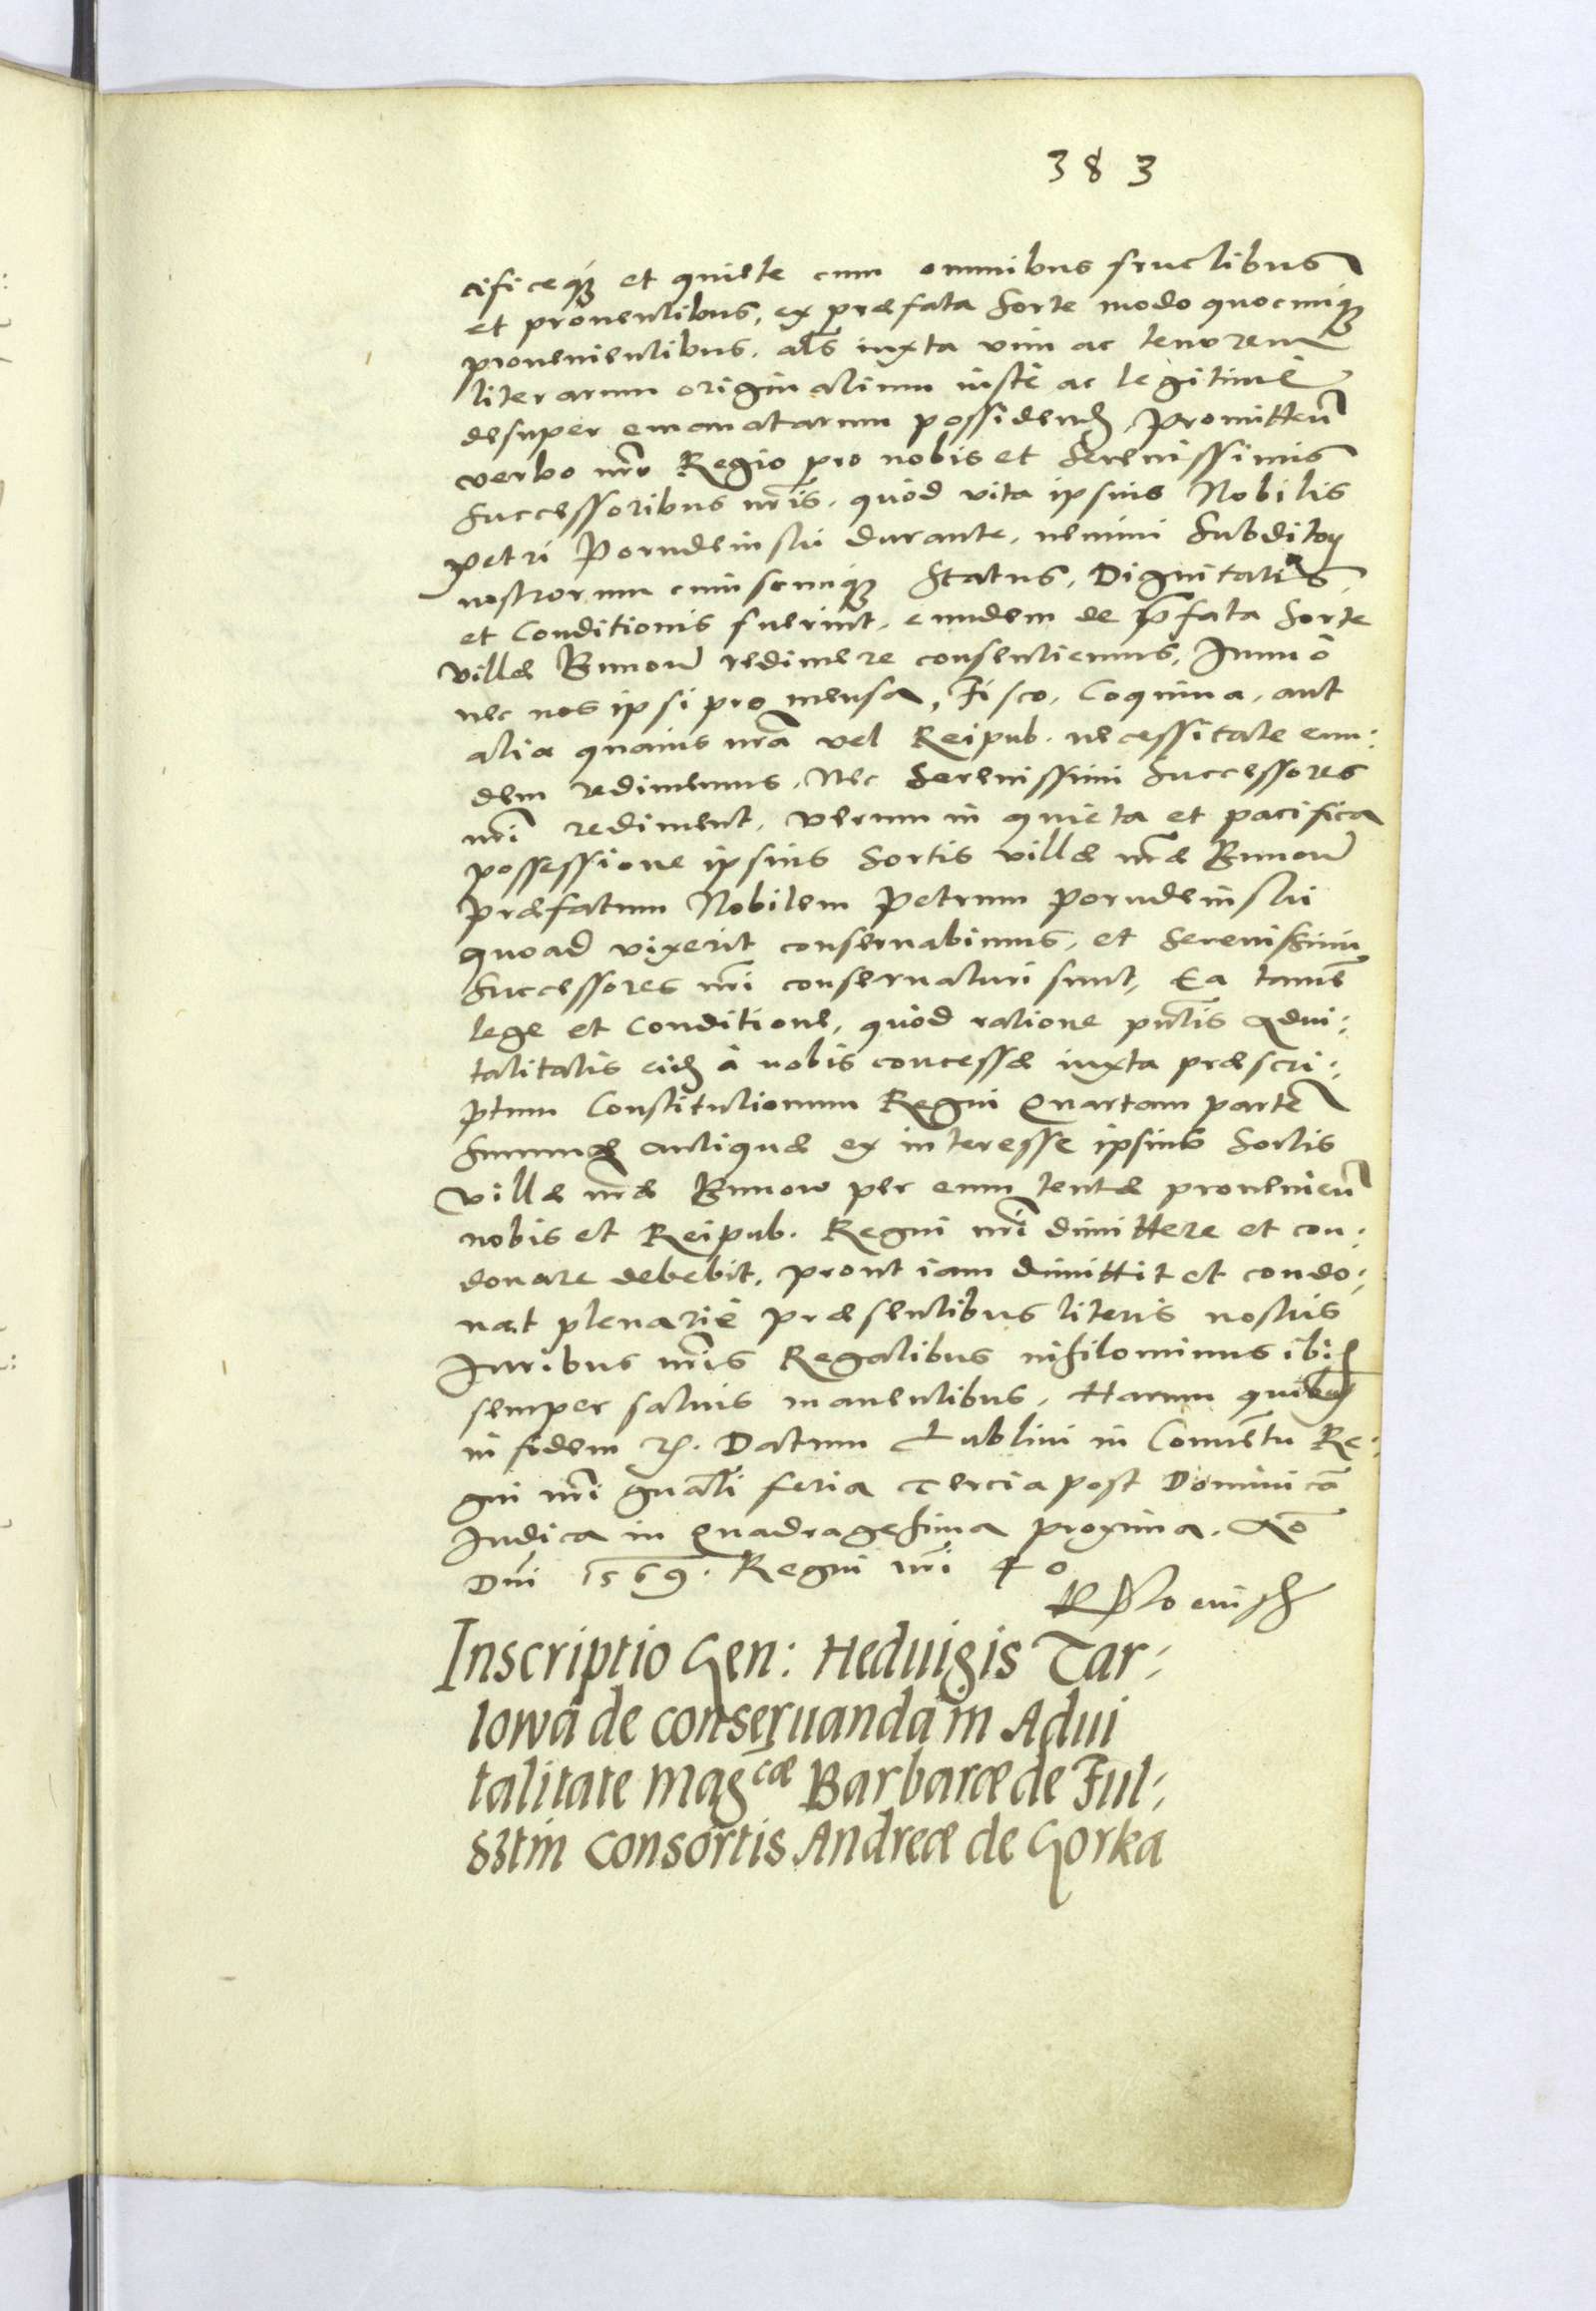 383
cificeq3 et quiete cum omnibus fructibus
et prouentibus, ex præfata Sorte modo quocunq3
prouenientibus. als iuxta vim ac tenorem
literarum originalium iustè ac legitimè
desuper emanatarum possidend, Promitten
verbo nro Regio pro nobis et Serenissimis
Successoribus nris. quòd vita ipsius Nobilis
Petri Porudeinski durante, nemini Subditor
nostrorum cuiuscunq3 Status, Dignitatis,
et Conditionis fuerint, eundem de pfata Sorte
Villæ Bunow redimere consentiemus, Immò
nec nos ipsi pro mensa, Fisco, Coquina, aut
alia quauis nra vel Reipub. necessitate eun:
dem redimemus, Nec Serenissimi Successores
nri rediment, verum in quieta et pacifica
possessione ipsius Sortis villæ nræ Bunow
Præfatum Nobilem Petrum Porudeinski
quoad vixerit conseruabimus, et Serenissimi
Successores nri conseruaturi sunt, Ea tamē
lege et Conditione, quòd ratione pntis Adui:
talitatis eid à nobis concessæ iuxta præscri:
ptum Constitutionum Regni Quartam partē
Summæ antiquæ ex interesse ipsius Sortis
Villæ nræ Bunow per eum tentæ prouenien
nobis et Reipub. Regni nri dimittere et con:
donare debebit, prout iam dimittit et condo:
nat plenariè præsentibus literis nostris
Iuribus nris Regalibus nihilominus ibid
semper saluis manentibus, Harum quibus
in fidem etc. Datum Lublini in Conuentu Re:
gni nri gnali feria Tercia post Dominicā
Iudica in Quadragesima proxima. Aō
Dni 1569. Regni nri 40
Inscriptio Gen: Heduigis Tar:
lowa de conseruanda in Adui
talitate Mag^cæ Barbaræ de Ful:
sztin Consortis Andreæ de Gorka